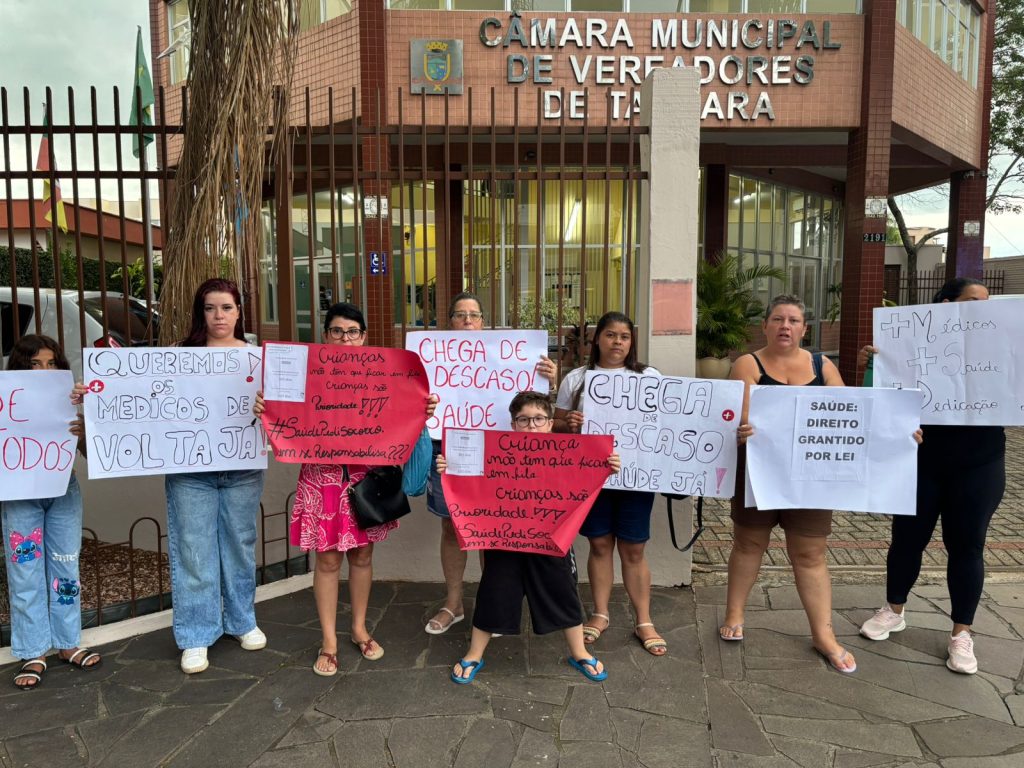 CÂMARA MUNICIPAL
DE VEREADORES
DE TA ARA
2191
DE
TODOS
QUEREMOS!
OS
MEDICOS DE
VOLTA JA!
CRIANÇAS
não tem que ficar em fila
CRIANÇAS SÃO
PRIORIDADE!!!
#SaúdePediSocorro.
CHEGA DE
DESCASO!
SAÚDE
CRIANÇA
não tem que ficar
em fila
CRIANÇAS SÃO
PRIORIDADE!!!
#SaúdePediSocorro
CHEGA
DESCASO
SAÚDE JÁ!
SAÚDE:
DIREITO
GRANTIDO
POR LEI
+ MÉDICOS
+ SAÚDE
+ DEDICAÇÃO